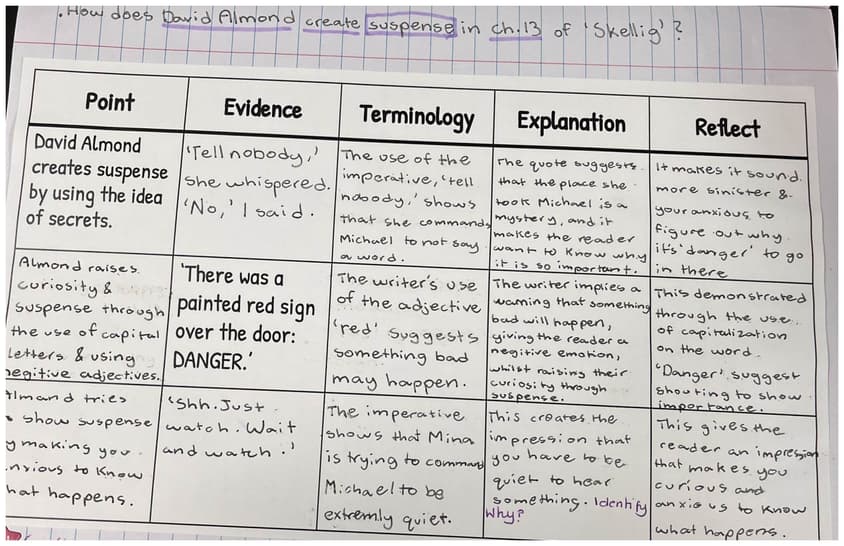 . How does David Almond create suspense in ch.13 of 'Skellig'?
Point
Evidence
Terminology
Explanation
Reflect
David Almond
creates suspense
by using the idea
of secrets.
'Tell nobody,'
she whispered.
'No,' I said.
The use of the
imperative, 'tell
nobody,' shows
that she commands
Michael to not say
a word.
The quote suggests
that the place she
took Michael is a
mystery, and it
makes the reader
want to know why
it is so important.
It makes it sound
more sinister &
your anxious to
figure out why
it's 'danger' to go
in there
Almond raises
curiosity &
suspense through
the use of capital
letters & using
negitive adjectives.
'There was a
painted red sign
over the door:
DANGER.'
The writer's use
of the adjective
'red' suggests
something bad
may happen.
The writer implies a
warning that something
bad will happen,
giving the reader a
negitive emotion,
whilst raising their
curiosity through
suspense.
This demonstrated
through the use
of capitalization
on the word
'Danger' suggest
shouting to show
importance.
Almond tries
show suspense
making you
to know
happens.
'Shh. Just
watch. Wait
and watch.'
The imperative
shows that Mina
is trying to command
Michael to be
extremly quiet.
This creates the
impression that
you have to be
quiet to hear
something. Identify
Why?
This gives the
reader an impression
that makes you
curious and
anxious to know
what happens.